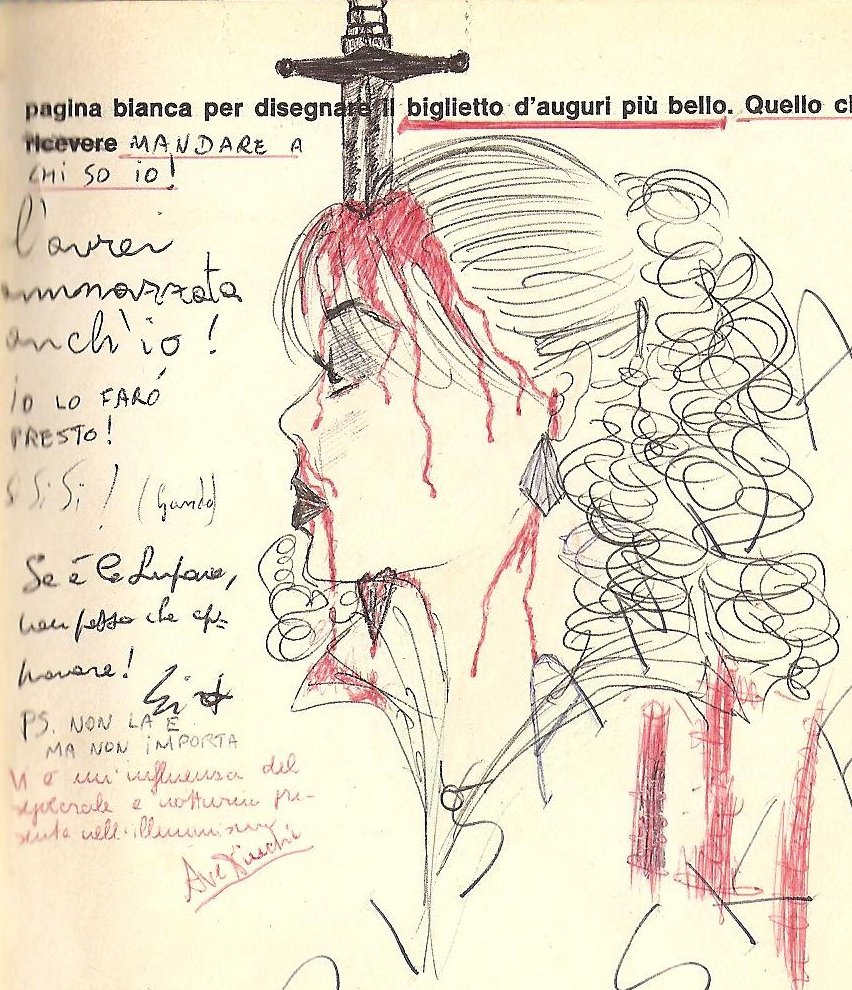 pagina bianca per disegnare il biglietto d'auguri più bello. Quello ch
ricevere MANDARE A
CHI SO IO!
l'avrei
ammazzata
anch'io!
IO LO FARÓ
PRESTO!
Si Si!
Se é la Lupare,
non posso che ap=
provare!
PS. NON LA È
MA NON IMPORTA
un'influenza del
sepolcrale e notturno pre-
sente nell'illuminismo